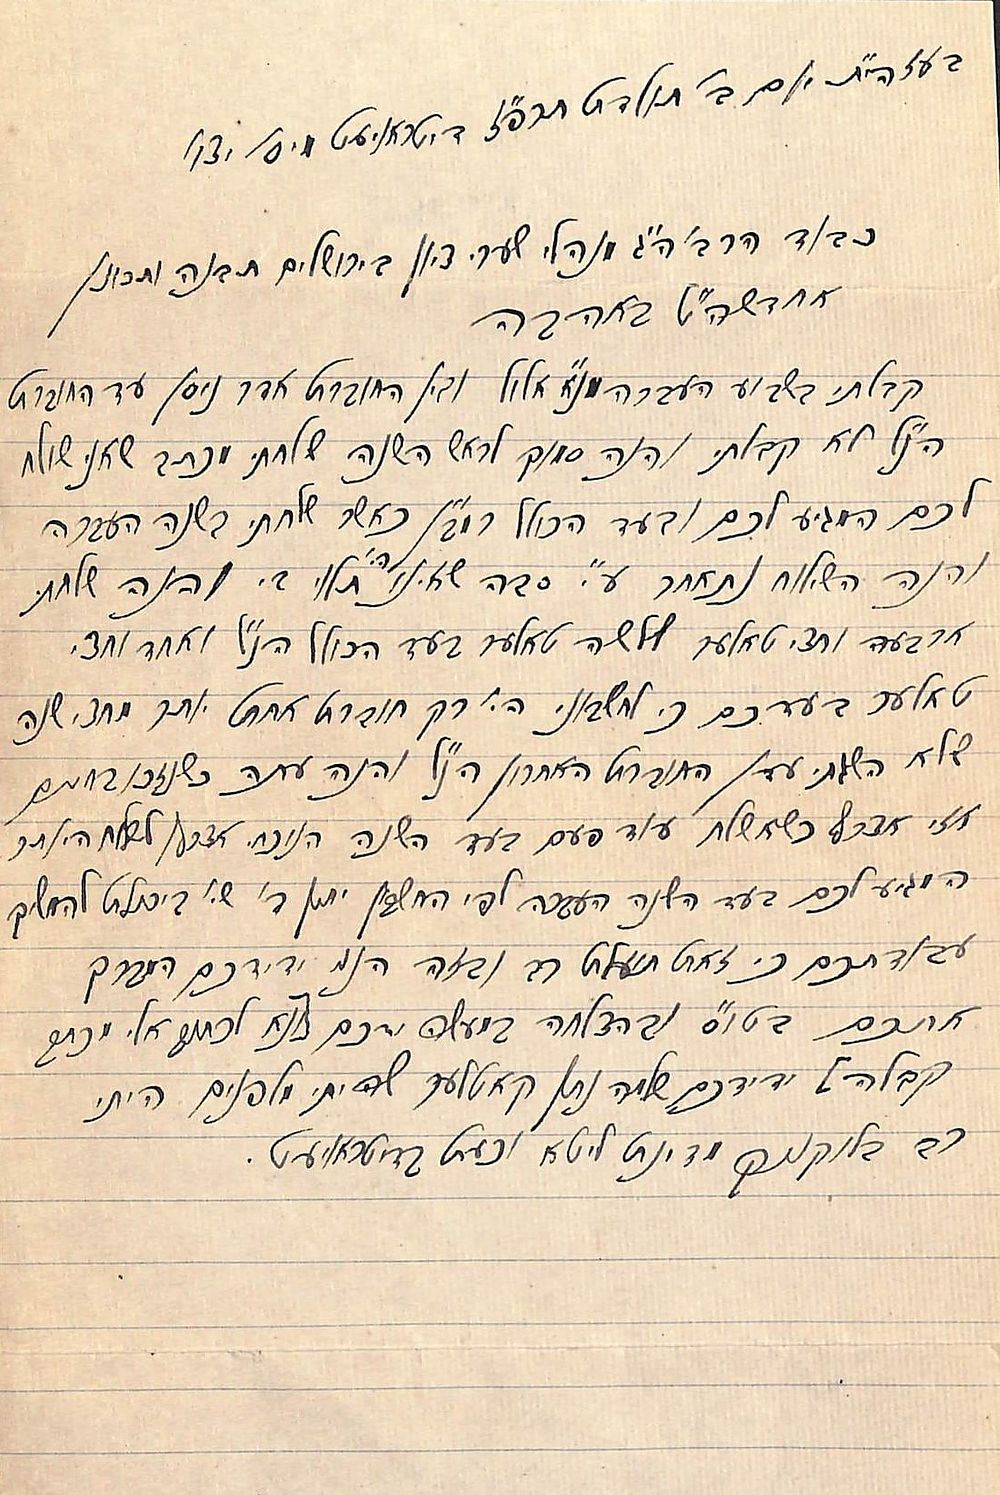 בעזהי"ת יום ב' תולדות תרפ"ז דיטראיט מיס' יצו'
כבוד הרב ה"ג מנהלי שערי ציון בירושלים תבנה ותכונן
אחדשה"ט באהבה
קבלתי בשבוע העברה אלול ובין החוברת אדר ניסן עד החוברת
הנ"ל לא קבלתי והנה סמוך לראש השנה שלחתי מכתב שאני שולח
לכם המגיע לכם ובעד הכולל רמב"ן כאשר שלחתי בשנה העברה
והנה השילוח נתאחר ע"י סבה שאיני הי' תלוי בי והנה שלחתי
ארבעה וחצי טאלער שלשה טאלער בעד הכולל הנ"ל ואחד וחצי
טאלער בעדכם כי לחשבוני הי' רק חוברת אחת יותר מחצי שנה
שלא השגתי עדין החוברת האחרון הנ"ל והנה עתה כשנזכו בחיים
אזי אצרף כשאשלח עוד פעם בעד השנה הנוכחי אצרף לשלוח היותר
המגיע לכם בעד השנה העברה לפי החשבון יתן ה' שי' ביכולת להמשיך
עבודתכם כי זאת תועלת רב ובזה הנני ידידכם המברך
אתכם בטו"ס ובהצלחה במעשה ידכם נא לכתוב אלי מכתב
קבלה ידידכם שלמה נתן קאטלער שהייתי מלפנים הייתי
רב בלוקניק מדינת ליטא וכעת בדיטראיט.